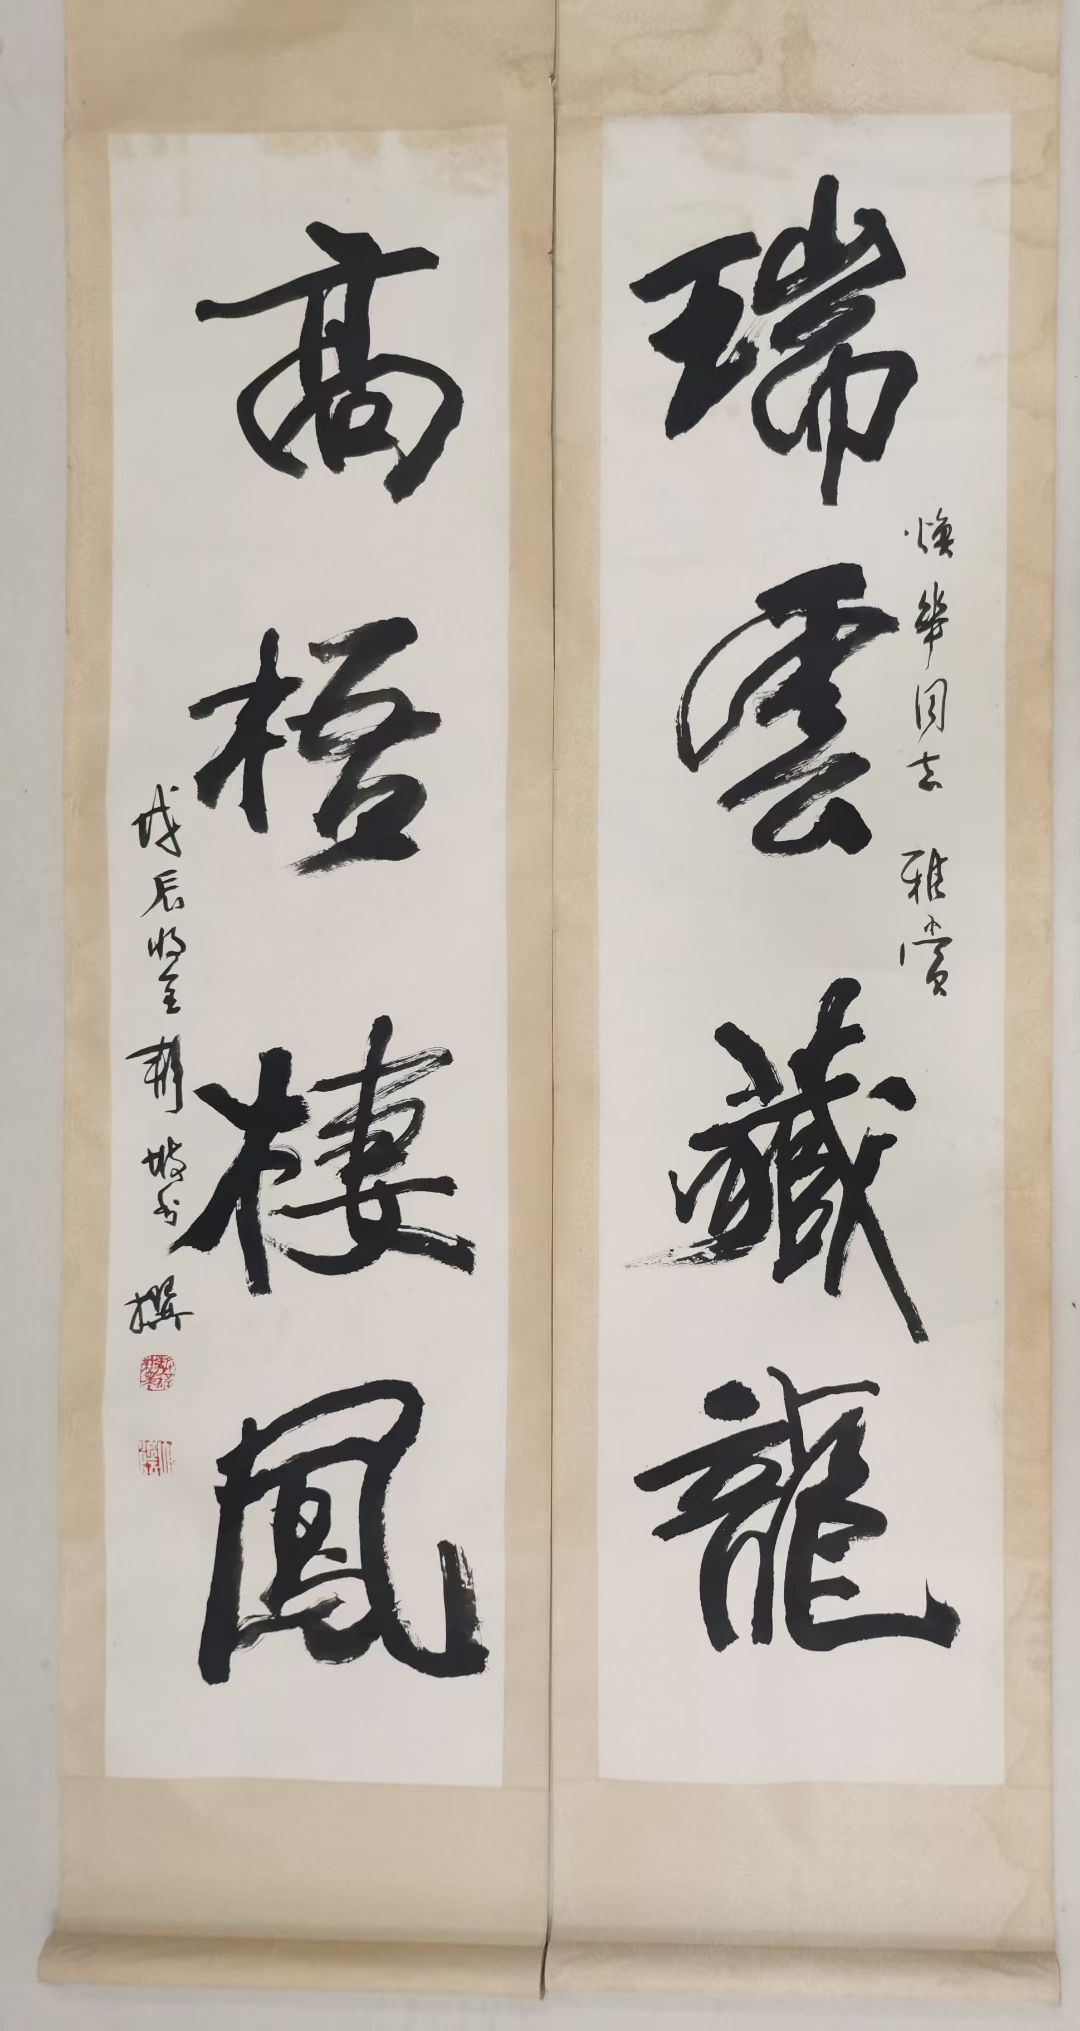 瑞雲藏龍
煥華同志 雅賞
高梧棲鳳
戊辰
撰